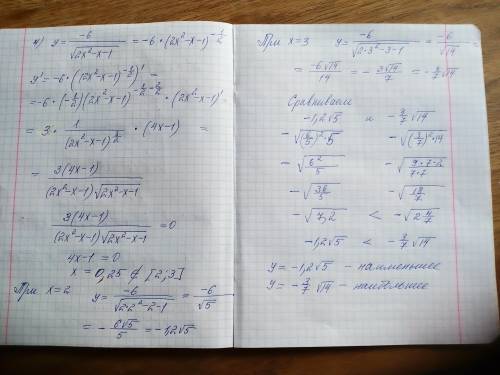 4) y = -6/√(2x²-x-1) = -6·(2x²-x-1)^(-1/2)
y' = -6·((2x²-x-1)^(-1/2))' =
= -6·(-1/2)(2x²-x-1)^(-1/2-2/2)·(2x²-x-1)' =
= 3·1/(2x²-x-1)^(3/2)·(4x-1) =
= 3(4x-1)/((2x²-x-1)√(2x²-x-1))
3(4x-1)/((2x²-x-1)√(2x²-x-1)) = 0
4x-1 = 0
x = 0,25 ∉ [2;3]
При x=2 y = -6/√(2·2²-2-1) = -6/√5
= -6√5/5 = -1,2√5
При x=3 y = -6/√(2·3²-3-1) = -6/√14 =
= -6√14/14 = -3√14/7 = -3/7√14
Сравниваем
-1,2√5 и -3/7√14
-√((6/5)²·5) -√((3/7)²·14)
-√(6²/5) -√(9·7·2/(7·7))
-√(36/5) -√(18/7)
-√7,2 < -√(2 4/7)
-1,2√5 < -3/7√14
y = -1,2√5 - наименьшее
y = -3/7√14 - наибольшее